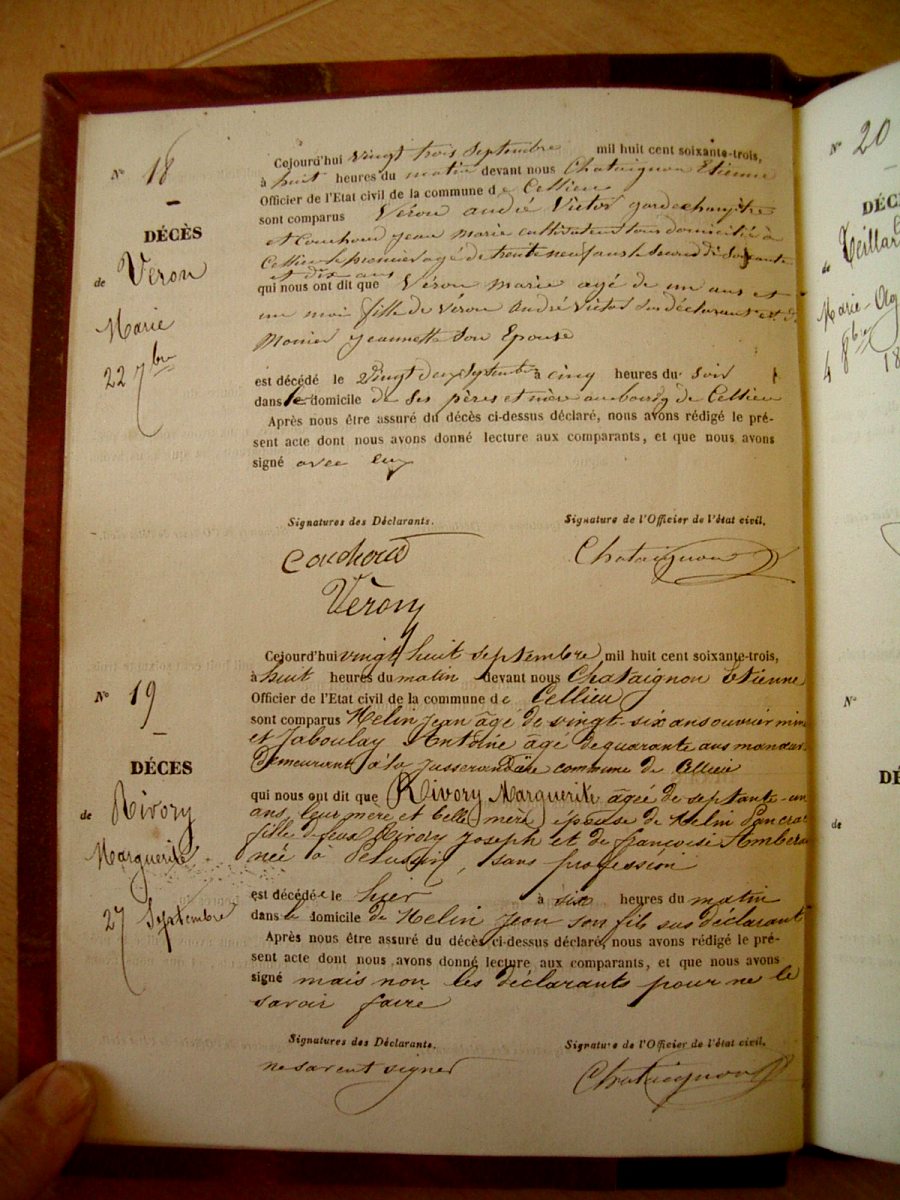 N° 18
DÉCÈS
de Veron
Marie
22 7bre
Cejourd'hui vingt trois septembre mil huit cent soixante-trois,
à huit heures du matin devant nous Chataignon Etienne
Officier de l'Etat civil de la commune de Cellieu
sont comparus Véron andré Victor garde champêtre
et Couchoud jean marie cultivateur tous domiciliés à
Cellieu le premier agé de trente neuf ans le second de soixante
et dix ans
qui nous ont dit que Véron marie agé de un ans et
un moi fille de Véron andré Victor sus déclarant et de
Monier jeannette son Epouse
est décédé le Vingt deux Septembre à cinq heures du soir
dans le domicile de ses pères et mère au bourg de Cellieu
Après nous être assuré du décès ci-dessus déclaré, nous avons rédigé le pré-
sent acte dont nous avons donné lecture aux comparants, et que nous avons
signé avec eux
Signatures des Déclarants. Signature de l'Officier de l'état civil.
Couchoud Chataignon
Véron
N° 19
DÉCES
de Rivory
Marguerite
27 Septembre
Cejourd'hui vingt huit septembre mil huit cent soixante-trois,
à huit heures du matin devant nous Chataignon Etienne
Officier de l'Etat civil de la commune de Cellieu
sont comparus Melin Jean âgé de vingt-six ans ouvrier min
et Jaboulay Antoine âgé de quarante ans
Demeurant à la commune de Cellieu
qui nous ont dit que Rivory Marguerite âgée de septante-un
ans, leur mère et belle mère épouse de Melin
fille de feux Rivory Joseph et de françoise
née à Pelussin, sans profession
est décédée le hier à six heures du matin
dans le domicile de Melin Jean son fils sus déclarant
Après nous être assuré du décès ci-dessus déclaré, nous avons rédigé le pré-
sent acte dont nous avons donné lecture aux comparants, et que nous avons
signé mais non les déclarants pour ne le
savoir faire
Signatures des Déclarants. Signature de l'Officier de l'état civil.
ne savent signer Chataignon
N° 20
DÉC
de
Marie
4 8bre 18
N°
DÉ
de